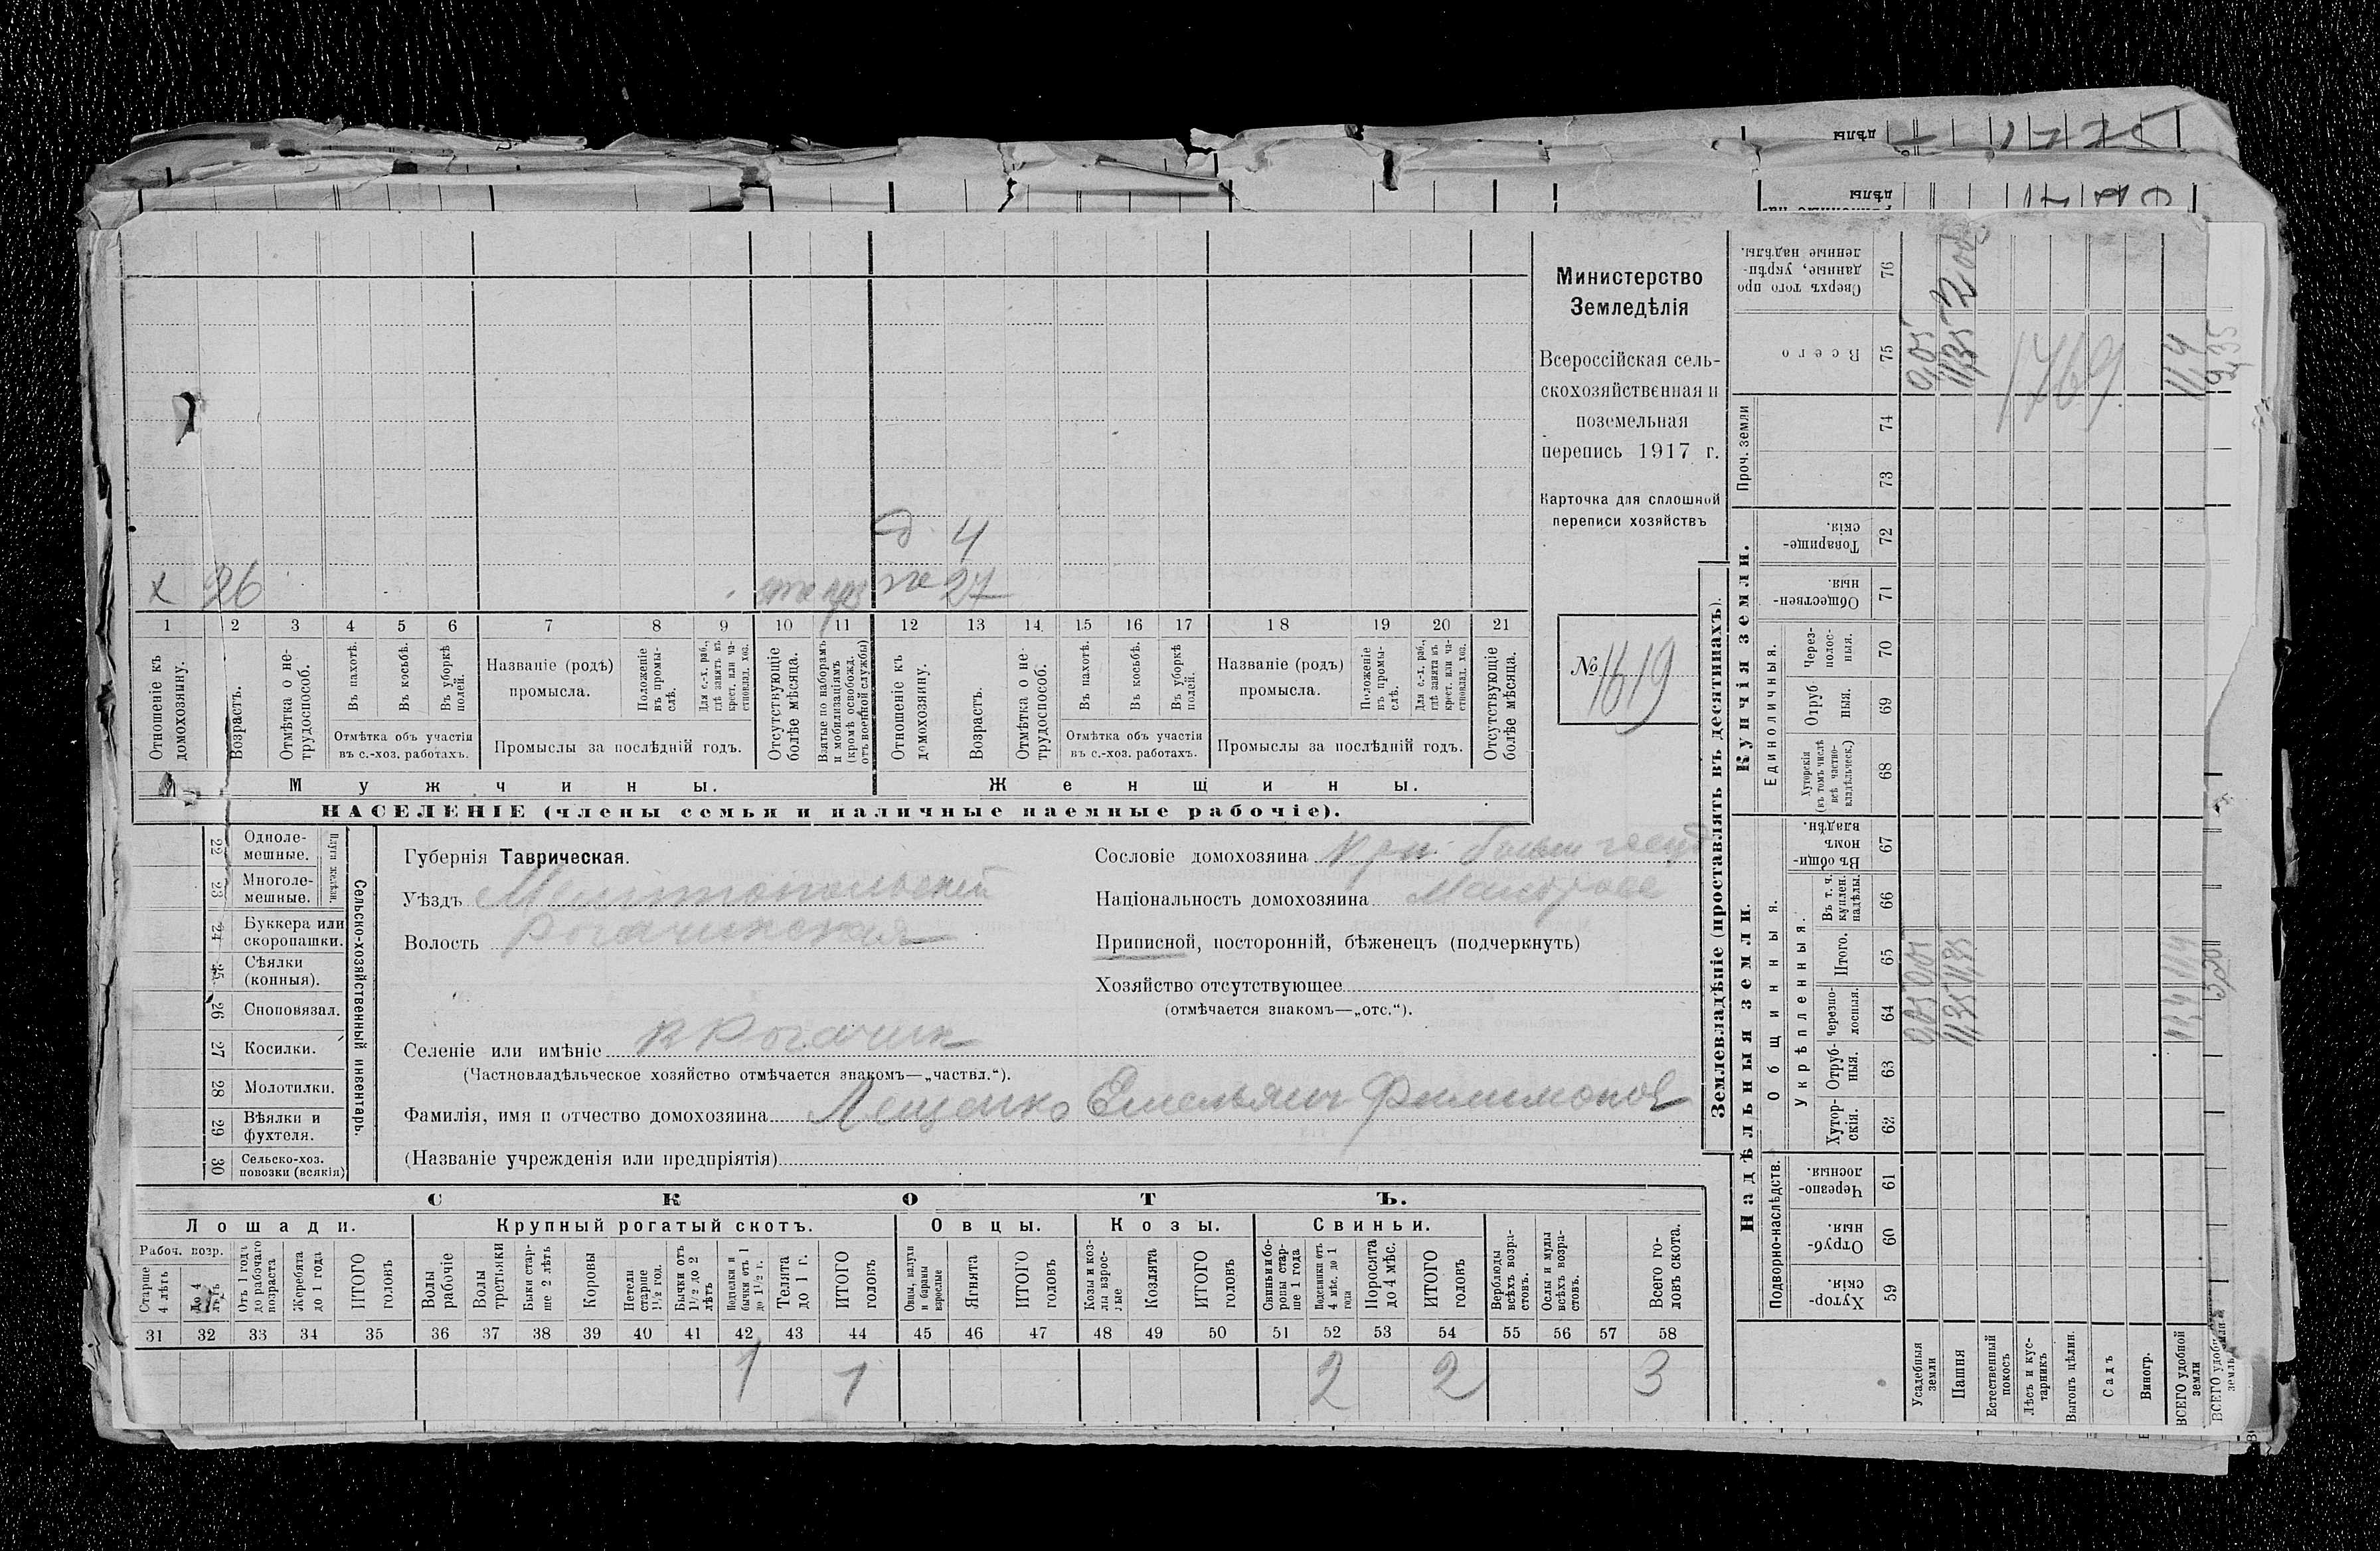 дѣлы
дѣлы
д. 4
х 26 же 27
1 2 3 4 5 6 7 8 9 10 11 12 13 14 15 16 17 18 19 20 21
Отношеніе къ домохозяину.
Возрастъ.
Отмѣтка о не-
трудоспособ.
Въ пахотѣ.
Въ косьбѣ.
Въ уборкѣ
полей.
Отмѣтка объ участіи
въ с.-хоз. работахъ.
Названіе (родъ)
промысла.
Положеніе
въ промы-
слѣ.
Для с.-х. раб.,
гдѣ занятъ въ
крест. или ча-
стновлад. хоз.
Промыслы за послѣдній годъ.
Отсутствующіе
болѣе мѣсяца.
Взятые по наборамъ
и мобилизаціямъ
(кромѣ освобожд.
отъ военной службы)
Отношеніе къ
домохозяину.
Возрастъ.
Отмѣтка о не-
трудоспособ.
Въ пахотѣ.
Въ косьбѣ.
Въ уборкѣ
полей.
Отмѣтка объ участіи
въ с.-хоз. работахъ.
Названіе (родъ)
промысла.
Положеніе
въ промы-
слѣ.
Для с.-х. раб.,
гдѣ занята въ
крест. или ча-
стновлад. хоз.
Промыслы за послѣдній годъ.
Отсутствующіе
болѣе мѣсяца.
Мужчины. Женщины.
НАСЕЛЕНІЕ (члены семьи и наличные наемные рабочіе).
Министерство
Земледѣлія
Всероссійская сель-
скохозяйственная и
поземельная
перепись 1917 г.
Карточка для сплошной
переписи хозяйствъ
№ 1619
22 Одноле-
мешные.
23 Многоле-
мешные.
Плуги желѣзн.
24 Буккера или
скоропашки.
25 Сѣялки
(конныя).
26 Сноповязал.
27 Косилки.
28 Молотилки.
29 Вѣялки и
фухтеля.
30 Сельско-хоз.
повозки (всякія)
Сельско-хозяйственный инвентарь.
Губернія Таврическая.
Уѣздъ Мелитопольскій
Волость Рогачикская
Селеніе или имѣніе В Рогачик
(Частновладѣльческое хозяйство отмѣчается знакомъ—„частвл.“).
Фамилія, имя и отчество домохозяина Лещенко Емельян Филимонов
(Названіе учрежденія или предпріятія)
Сословіе домохозяина
Національность домохозяина Малоросс
Приписной, посторонній, бѣженецъ (подчеркнуть)
Хозяйство отсутствующее
(отмѣчается знакомъ—„отс.“).
СКОТЪ.
Лошади. Крупный рогатый скотъ. Овцы. Козы. Свиньи.
Рабоч. возр.
Старше
4 лѣтъ
До 4
лѣтъ
Отъ 1 годъ
до рабочаго
возраста
Жеребята
до 1 года
ИТОГО
головъ
Волы
рабочіе
Волы
третьяки
Быки стар-
ше 2 лѣтъ
Коровы
Нетели
старше
1½ год.
Бычки отъ
1½ до 2
лѣтъ
Подтелки и
бычки отъ 1
до 1½ г.
Телята
до 1 г.
ИТОГО
головъ
Овцы, валухи
и бараны
взрослые
Ягнята
ИТОГО
головъ
Козы и коз-
лы взрос-
лые
Козлята
ИТОГО
головъ
Свиньи и бо-
ровы стар-
ше 1 года
Подсвинки отъ
4 мѣс. до 1
года
Поросята
до 4 мѣс.
ИТОГО
головъ
Верблюды
всѣхъ возра-
стовъ.
Ослы и мулы
всѣхъ возра-
стовъ.
Всего го-
ловъ скота.
31 32 33 34 35 36 37 38 39 40 41 42 43 44 45 46 47 48 49 50 51 52 53 54 55 56 57 58
1 1 2 2 3
Землевладѣніе (проставлять въ десятинахъ).
Надѣльныя земли. Купчія земли. Проч. земли
Подворно-наслѣдств.
Общинныя.
Укрѣпленныя.
Единоличныя.
Хутор-
скія.
59
Отруб-
ныя.
60
Черезпо-
лосныя.
61
Хутор-
скія.
62
Отруб-
ныя.
63
Черезпо-
лосныя.
64
Итого.
65
Въ т. ч.
куплен.
надѣлы.
66
Въ общи-
номъ
владѣн.
67
Хуторскія
(въ томъ числѣ
всѣ частно-
владѣльческ.)
68
Отруб
ныя.
69
Через-
полос-
ныя.
70
Обществен-
ныя.
71
Товарище-
скія.
72
73
74
Всего
75
Сверхъ того про
данные, укрѣп-
ленные надѣлы.
76
Усадебныя
земли
0,05 0,05 0,05
Пашня
11,35 11,35 11,35
Естественный
покосъ
Лѣсъ и кус-
тарникъ
1769
Выгонъ цѣлин.
Садъ
Виногр.
ВСЕГО удобной
земли
11,4 11,4 11,4
ВСЕГО удобн
земли
9,35